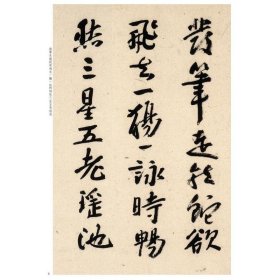 發筆走龍蛇欲
飛去一觴一詠時暢
三星五老瑤池